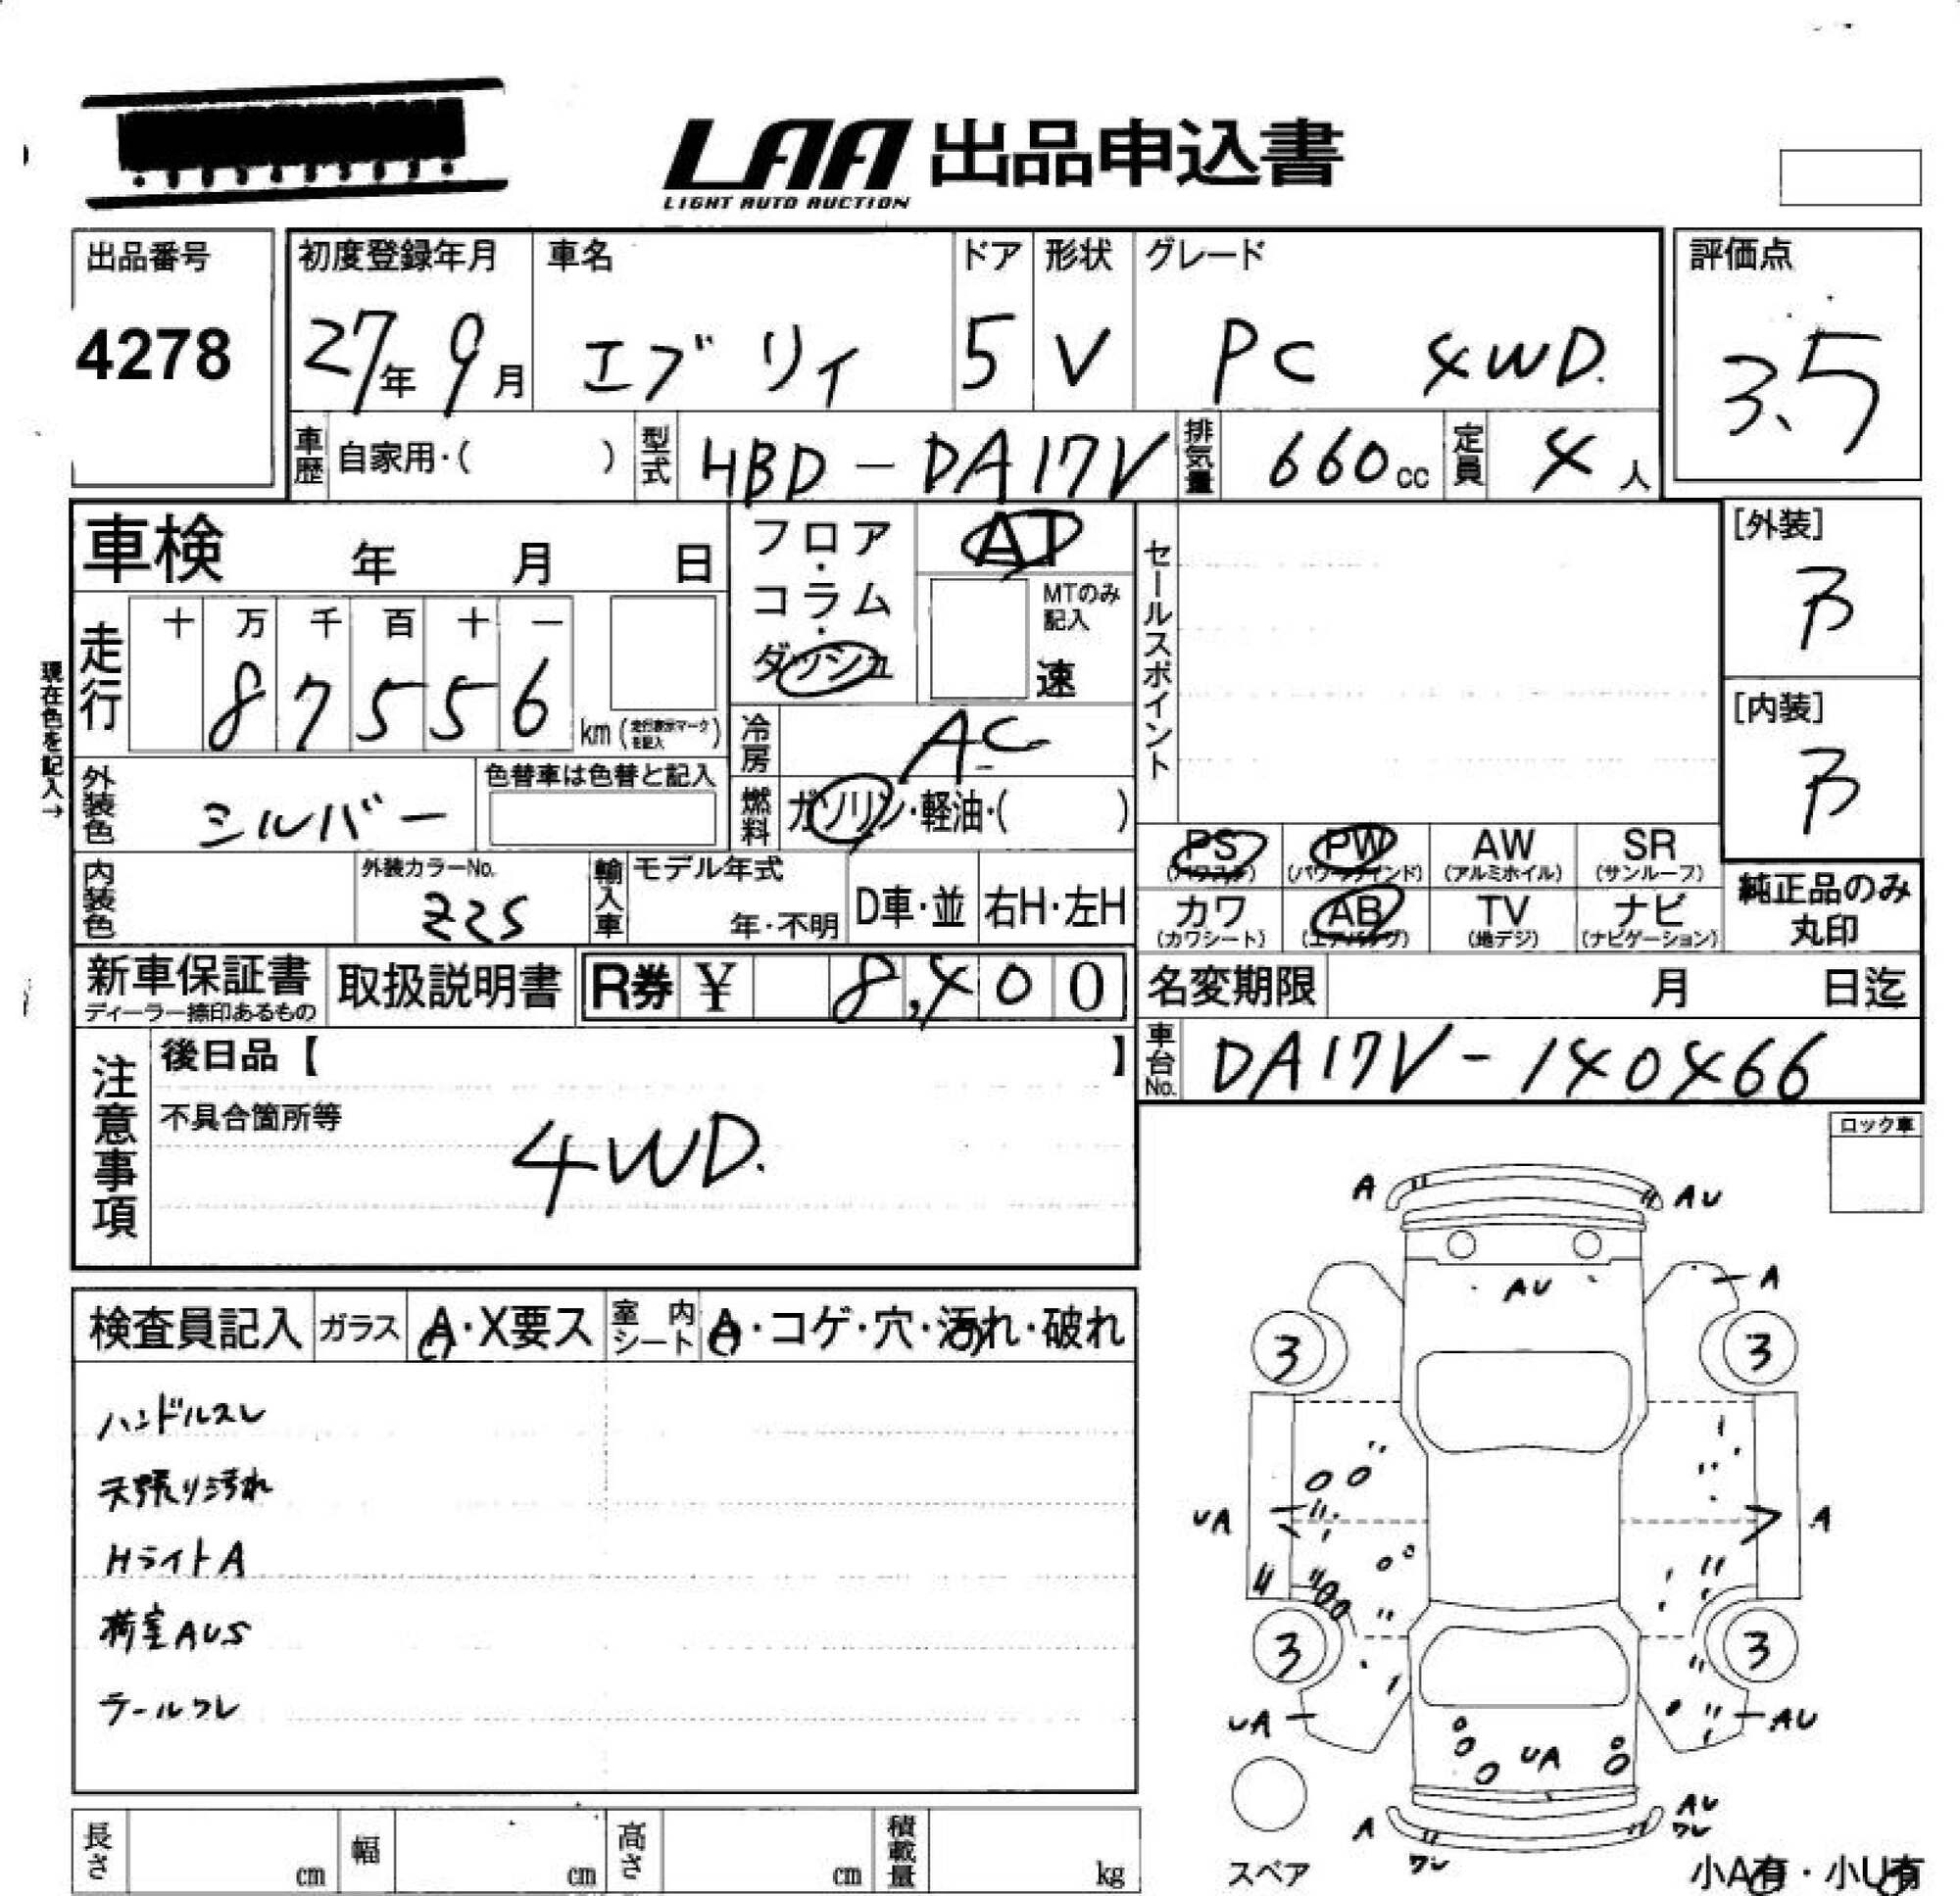 LAA 出品申込書
LIGHT AUTO AUCTION
出品番号
4278
初度登録年月
27年 9月
車名
エブリイ
ドア
5
形状
V
グレード
PC 4WD.
評価点
3.5
車歴 自家用・( )
型式 HBD-DA17V
排気量 660cc
定員 4人
車検 年 月 日
走行 十 万 千 百 十 一
87556 km (走行表示マークを記入)
現在色を記入→
外装色 シルバー
色替車は色替と記入
内装色
外装カラーNo.
Z2S
フロア・コラム・ダッシュ
AT
MTのみ記入
速
冷房 AC
燃料 ガソリン・軽油・( )
輸入車 モデル年式
年・不明
D車・並 右H・左H
セールスポイント
[外装]
B
[内装]
B
PS (パワステ) PW (パワーウインド) AW (アルミホイル) SR (サンルーフ)
カワ (カワシート) AB (エアバッグ) TV (地デジ) ナビ (ナビゲーション)
純正品のみ
丸印
新車保証書
ディーラー捺印あるもの
取扱説明書
R券 ¥ 8,400
名変期限 月 日迄
車台No. DA17V-140466
注意事項
後日品【 】
不具合箇所等
4WD.
ロック車
検査員記入 ガラス A・X要ス 室内シート A・コゲ・穴・汚れ・破れ
ハンドルスレ
天張り汚れ
HライトA
荷室AUS
テールワレ
A AU
AU A
3 3
UA A
3 3
UA AU
UA
A AU
ワレ ワレ
スペア
小A有・小U有
長さ cm 幅 cm 高さ cm 積載量 kg